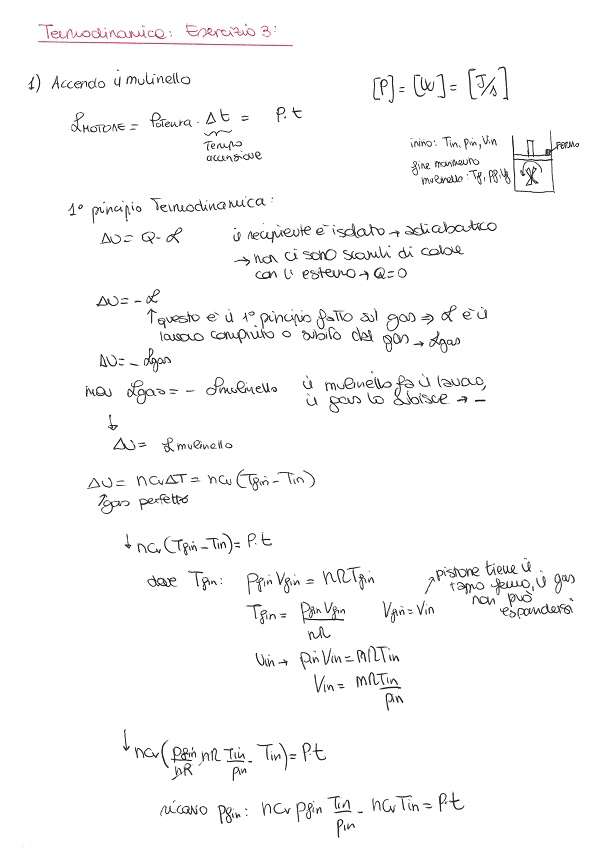 Termodinamica: Esercizio 3:
1) Accendo il mulinello
[P] = [W] = [J/s]
L MOTORE = Potenza · Δt = P·t
Tempo
accensione
inizio: Tin, pin, Vin
FERMO
fine manovra
mulinello: Tf, pf, Vf
1° principio Termodinamica:
ΔU = Q - L il recipiente è isolato → adiabatico
→ non ci sono scambi di calore
con l'esterno → Q=0
ΔU = - L
↑ questo è il 1° principio fatto sul gas ⇒ L è il
lavoro compiuto o subito dal gas → Lgas
ΔU = - Lgas
ma Lgas = - Lmulinello il mulinello fa il lavoro,
il gas lo subisce → -
↓
ΔU = Lmulinello
ΔU = ncvΔT = ncv (Tfin - Tin)
↑ gas perfetto
↓ ncv (Tfin - Tin) = P·t
dove Tfin: pfin Vfin = nRTfin
pistone tiene il
tappo fermo, il gas
non può
espandersi
Tfin = pfin Vfin / nR Vfin = Vin
Vin → pin Vin = nRTin
Vin = nRTin / pin
↓ ncv (pfin / nR nR Tin / pin - Tin) = P·t
ricavo pfin: ncv pfin Tin / pin - ncv Tin = P·t